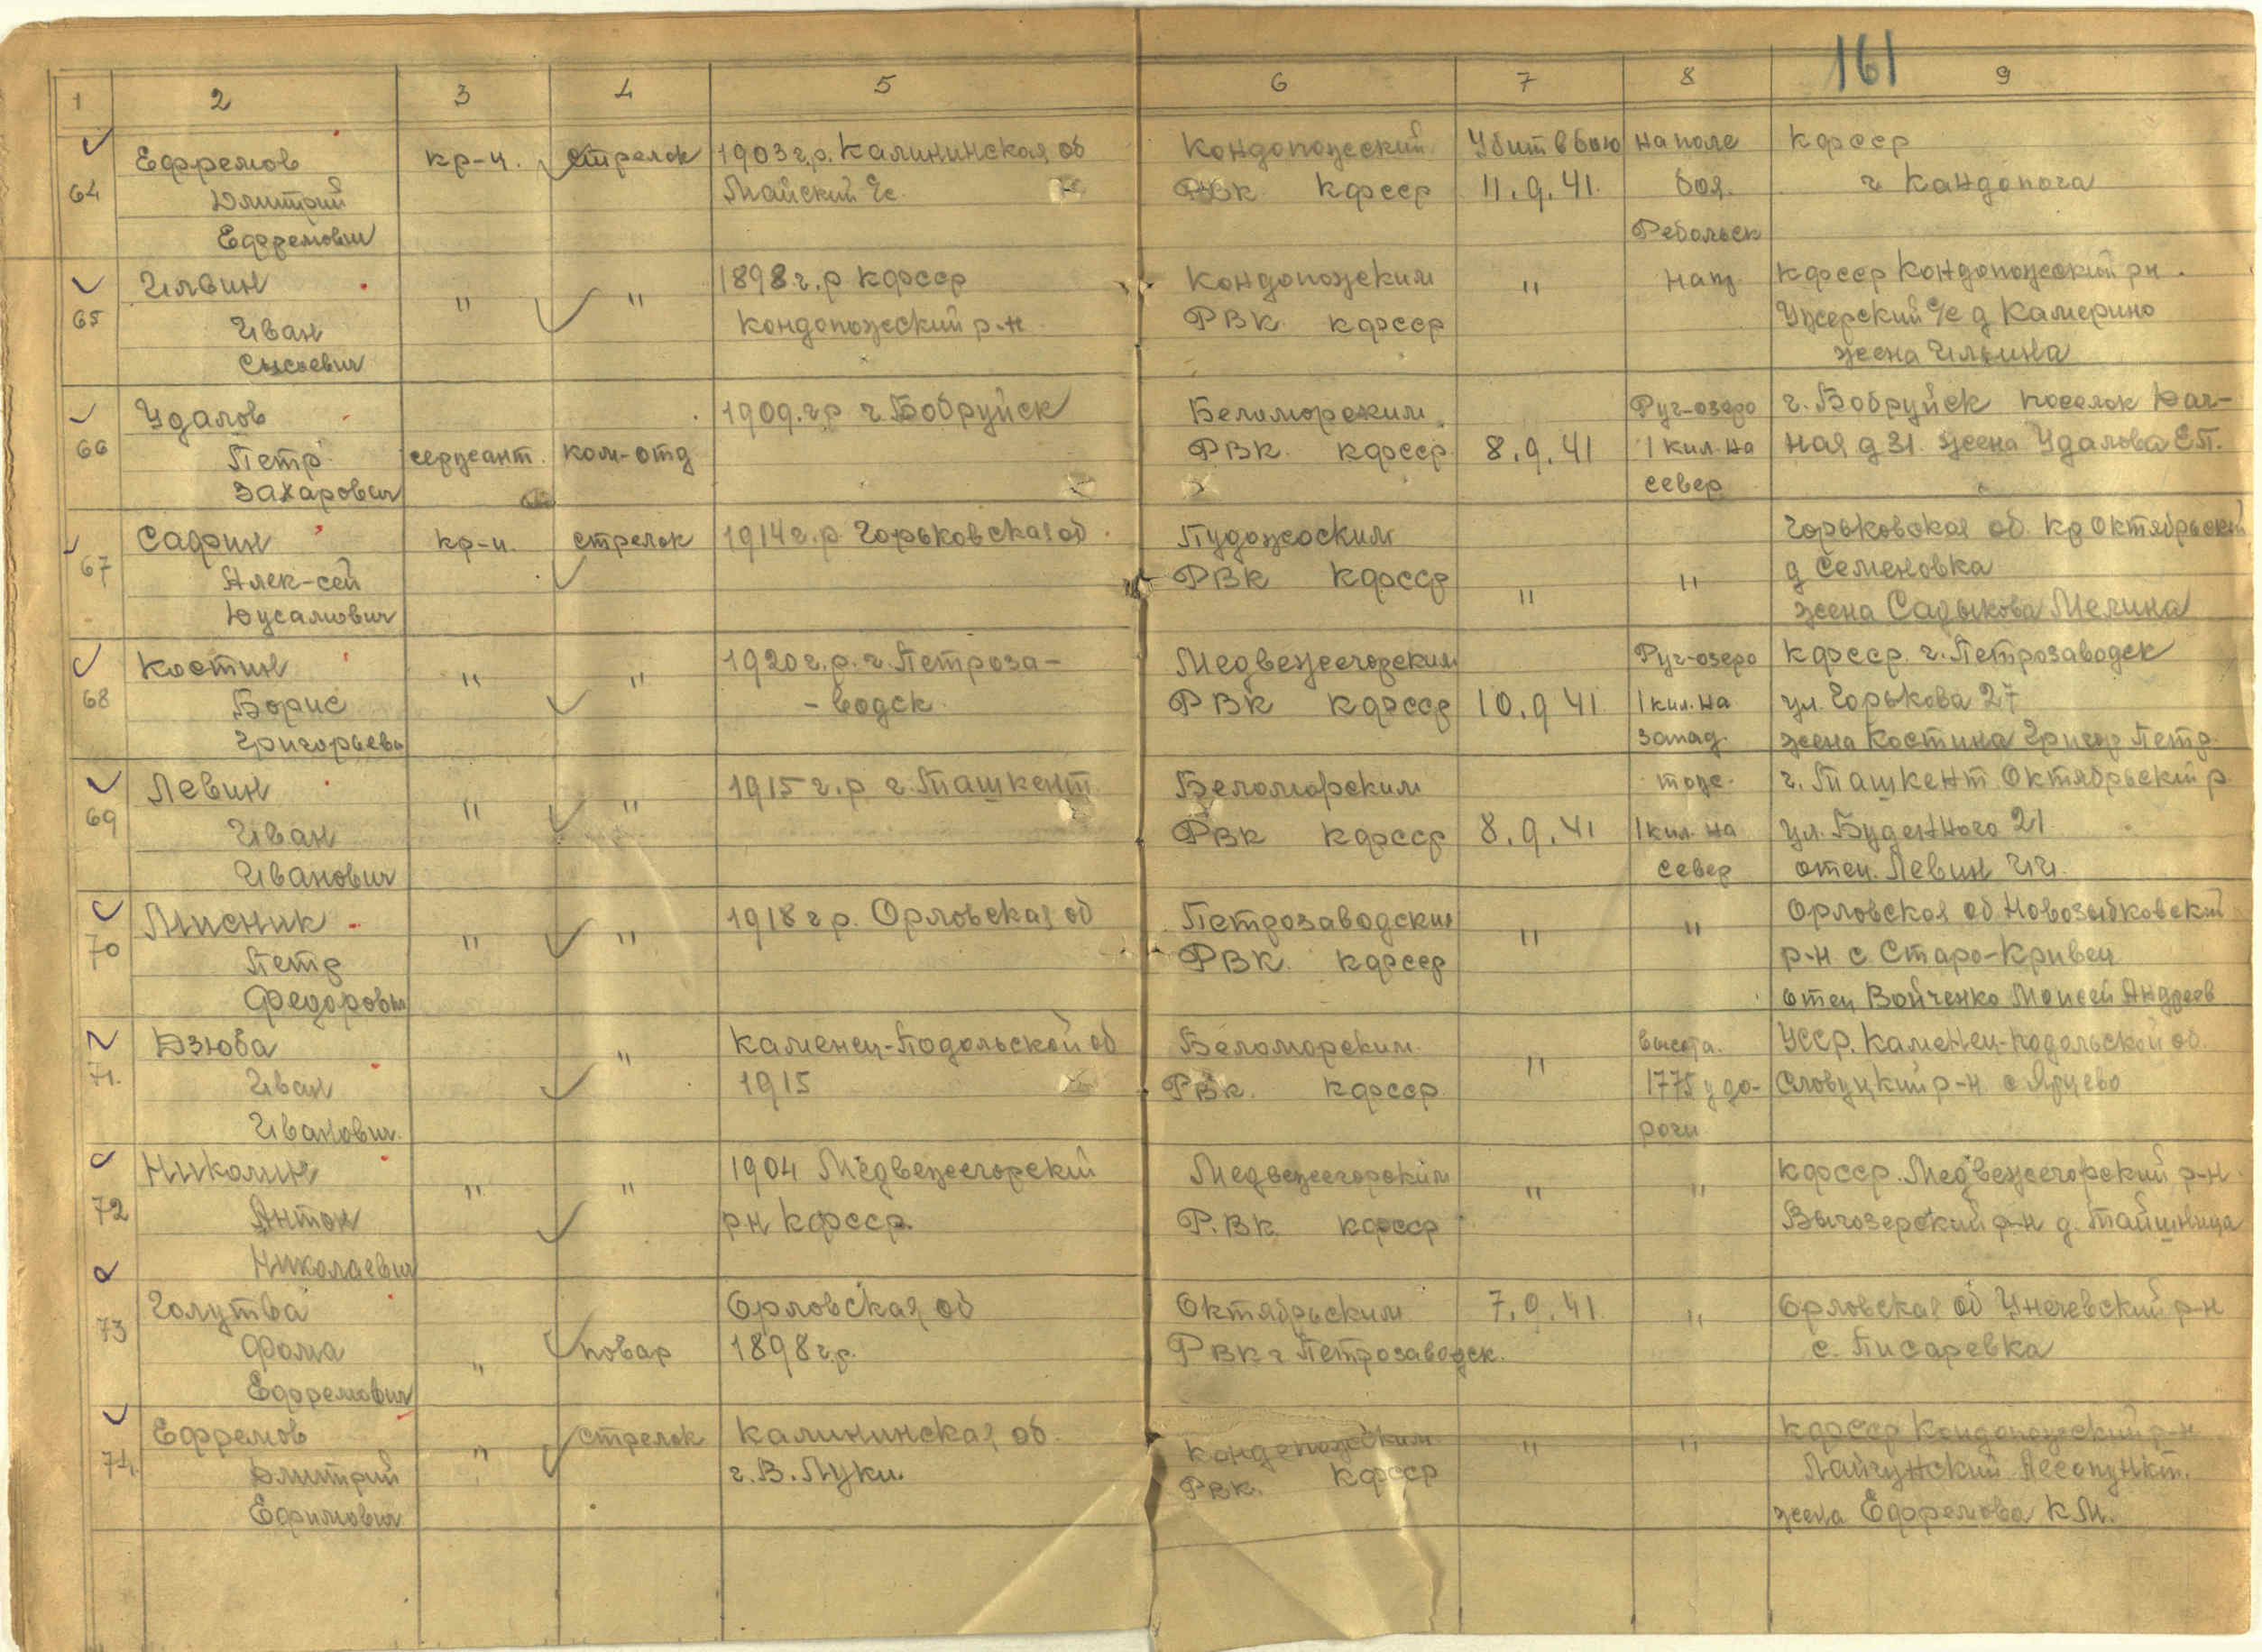 161
1 2 3 4 5 6 7 8 9
64 Ефремов кр-ц. стрелок 1903 г.р. Калининская об Кондопожский Убит в бою на поле КФССР
Дмитрий Майский с/с РВК КФССР 11.9.41. боя. г Кандопога
Ефремович Ребольск
65 Илвин " " 1898 г.р КФССР Кондопожским " нап КФССР Кондопожский рн.
Иван Кондопожский р-н РВК КФССР Ужерский с/с д Камерино
Сысоевич жена Ильина
66 Удалов 1909.г.р г. Бобруйск Беломорским Руг-озеро г. Бобруйск поселок Дач-
Петр сержант. ком-отд РВК КФССР 8.9.41 1 кил. на ная д 31. жена Удалова Е П.
Захарович север
67 Сафин кр-ц. стрелок 1914 г.р. Горьковская об. Пудожским Горьковская об. Кр Октябрьский
Алек-сей РВК КФССР " " д Семеновка
Юусамович жена Садыкова Мелина
68 Костин " " 1920 г.р. г. Петроза- Медвежегорским Руг-озеро КФССР. г. Петрозаводск
Борис -водск РВК КФССР 10.9 41 1 кил. на ул. Горькова 27
Григорьевь запад. жена Костина Григор Петр.
69 Левин " " 1915 г.р г. Ташкент Беломорским тоже. г. Ташкент Октябрьский р
Иван РВК КФССР 8.9.41 1 кил. на ул. Буденного 21
Иванович север отец. Левин И И.
70 Мисник " " 1918 г р. Орловская об Петрозаводским " " Орловская об Новозыбковский
Петр РВК. КФССР р-н с Старо-Кривец
Федорович отец Войченко Моисей Андреев
71. Дзюба " Каменец-Подольской об Беломорским " высота. УССР. Каменец-подольской об.
Иван 1915 РВК. КФССР 1775 у до- Словуцкий р-н с Ярцево
Иванович. роги
72 Николин " " 1904 Медвежегорский Медвежегорским " " КФССР. Медвежегорский р-н
Антон рн КФССР. Р.ВК КФССР Выгозерский р-н д. Тайшница
Николаевич
73 Голутва Орловская об Октябрьским 7.9.41. " Орловская об Унечевский р-н
Фома " повар 1898 гр. РВК г Петрозаводск. с. Писаревка
Ефремович
74. Ефремов " стрелок Калининская об. Кондопожским " " КФССР Кондопожский р-н
Дмитрий г. В. Луки. РВК. КФССР Лайгунский Лесопункт.
Ефимович жена Ефремова К.М.